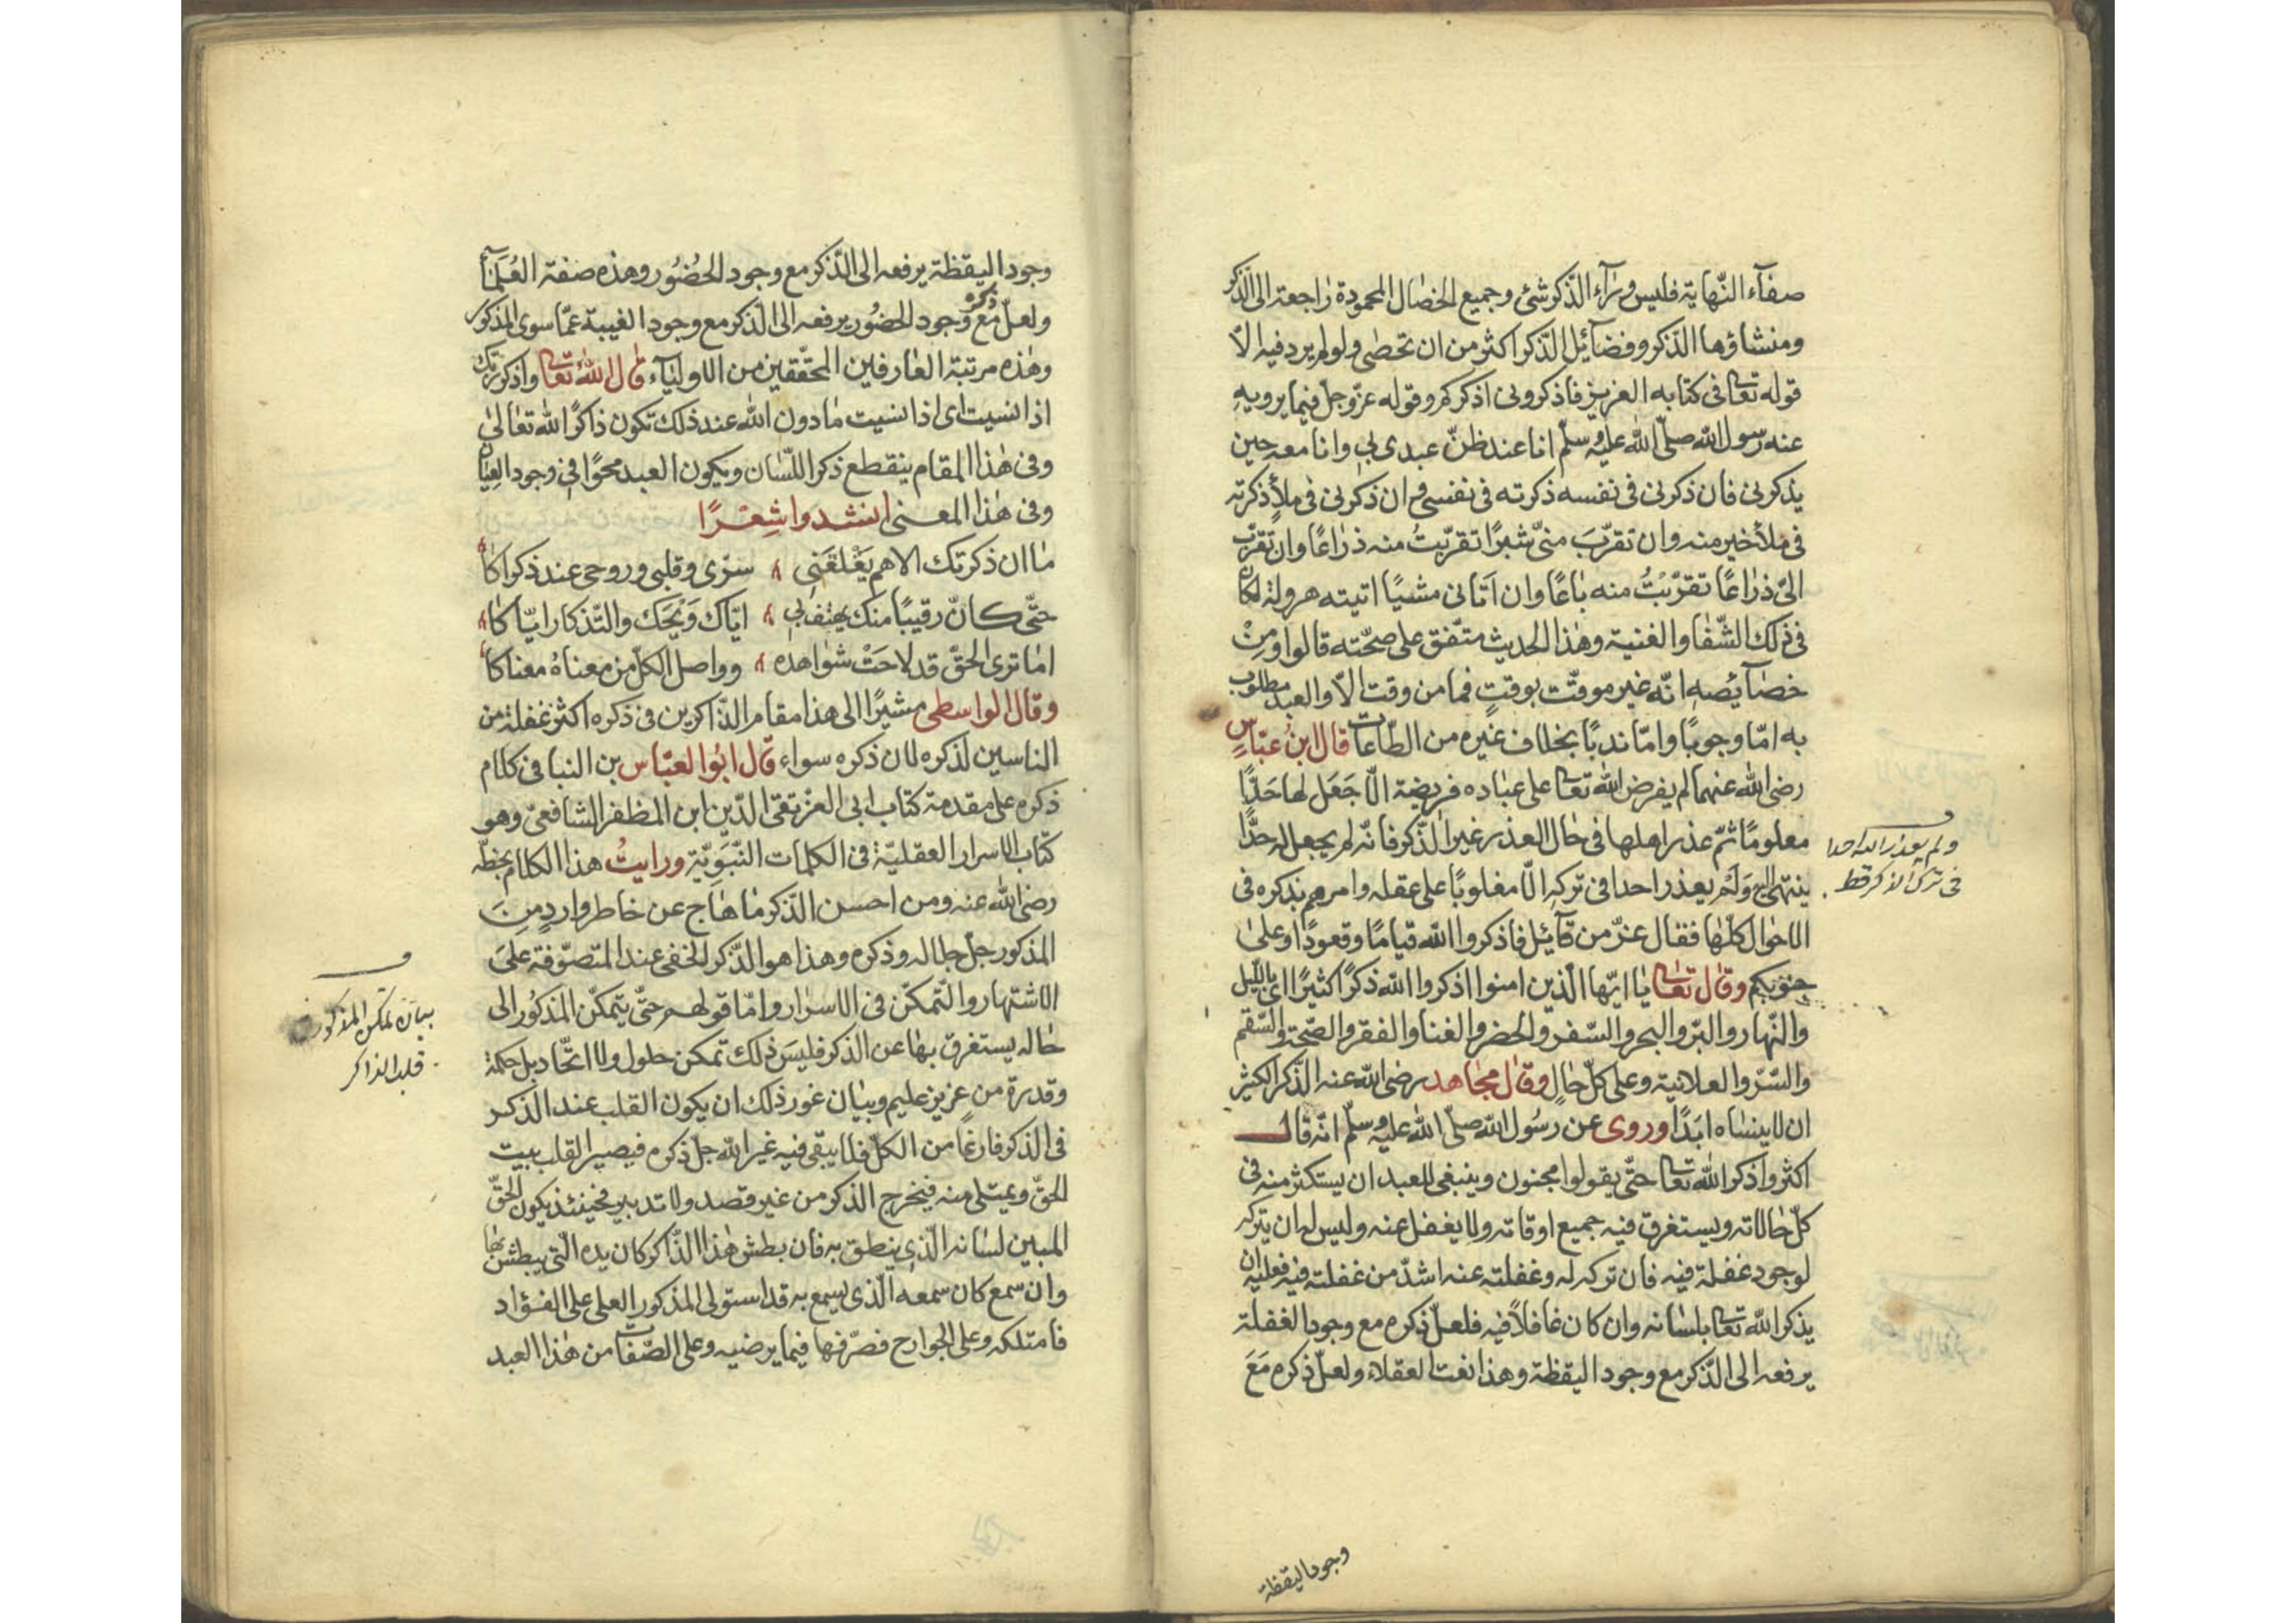 صفآء النّهاية فليس ورٰآء الذّكر شئ وجميع الخصٰال المحمودة رٰاجعة الى الذّكر
ومنشاؤها الذّكر وفضآئل الذّكر اكثر من ان تحصٰى ولو لم يرد فيه الّا
قوله تعٰا فى كتابه العزيز فاذكرونى اذكركم وقوله عزّ وجلّ فيما يرويه
عنه رسول الله صلّى الله عليه وسلّم انا عند ظنّ عبدى بى وانا معه حين
يذكرنى فان ذكرنى فى نفسه ذكرته فى نفسى وان ذكرنى فى ملأ ذكرته
فى ملأ خير منه وان تقرّبَ منّى شبرًا تقرّبتُ منه ذرٰاعًا وان تقرّب
الىّ ذرٰاعًا تقرّبتُ منه بٰاعًا وان اَتٰانى مشيًا اتيته هرولة لكان
فى ذلك الشّفٰا والغنية وهٰذا الحديث متّفق على صحّته قالوا ومِنْ
خصٰآئصه انّه غير موقّت بوقتٍ فما من وقت الّا والعبد مطلوب
به امّا وجوبًا وامّا ندبًا بخلاف غيره من الطّاعات قال ابنُ عبّاسٍ
رضى الله عنهما لم يفرض الله تعٰا على عبٰاده فريضة الّا جَعَل لهٰا حَدًّا
معلومًا ثمّ عذر اهلها فى حٰال العذر غير الذّكر فانّه لم يجعل له حدًّا
ينتهى اليه وَلَمْ يعذر احدا فى تركِه الّا مغلوبًا على عقله وامرهم بذكره فى
الاحوٰال كلّهٰا فقال عزّ من قآئل فاذكروا الله قيامًا وقعودًا وعلىٰ
جنوبكم وقٰال تعٰا يٰا ايّها الّذين امنوا اذكروا الله ذكرًا كثيرًا اى بالّليل
والنّهار والبرّ والبحر والسّفر والحضر والغنا والفقر والصّحة والسّقم
والسّرّ والعلانية وعلى كلّ حٰالٍ وقٰال مجٰاهد رضى الله عنه الذّكر الكثير
ان لا ينسٰاه ابَدًا وروى عن رسُول الله صلّى الله عليه وسلّم انّه قال
اكثروا ذكر الله تعٰا حتّى يقولوا مجنون وينبغى للعبد ان يستكثر منه فى
كلّ حٰالاته ويستغرق فيه جميع اوقاته ولا يغفل عنه وليس له ان يتركه
لوجود غفلة فيه فان تركه له وغفلته عنه اشدّ من غفلته فيه فعليه ان
يذكر الله تعٰا بلسٰانه وان كان غافلًا فيه فلعلّ ذكره مع وجود الغفلة
يرفعه الى الذّكر مع وجود اليقظة وهذا نعت العقلاء ولعلّ ذكره مَعَ
ولم يعذر الله احدا
فى ترك الذكر قط
وجود اليقظة
وجود اليقظة يرفعه الى الذّكر مع وجود الحُضُور وهذه صفة العُلَمآء
ولعلّ ذكره مع وجود الحضُور يرفعه الى الذّكر مع وجود الغيبة عمّا سوى المذكور
وهٰذه مرتبة العٰارفين المحقّقين من الاوليٰآء قٰال اللهُ تعٰا واذكر ربّك
اذا نسيت اى اذا نسيت مٰا دون الله عند ذلك تكون ذاكرًا لله تعٰالىٰ
وفى هٰذا المقام ينقطع ذكر اللّسٰان ويكون العبد محوًا فى وجود العيٰان
وفى هٰذا المعنى انشدوا شِعْرًا
مٰا ان ذكرتك الا هم يَغْلَقَنِى سرّى وقلبى وروحى عند ذكراكا
حتّى كانّ رقيبًا منك يهتف بى ايّاك وَيْحَك والتّذكار ايّاكا
امٰا ترى الحقّ قد لاحَتْ شوٰاهده وواصل الكلّ من معناهُ معناكا
وقال الواسطى مشيرًا الى هذا مقام الذّاكرين فى ذكره اكثر غفلة من
الناسين لذكره لان ذكره سواء قال ابُو العبّاس بن البنا فى كلام
ذكره على مقدمة كتاب ابى العزّ تقى الدّين ابن المظفر الشافعىّ وهو
كتاب الاسرار العقليّة فى الكلمات النّبَوِيّة ورايتُ هذا الكلام بخطّه
رضى الله عنه ومن احسن الذّكر مٰا هٰاج عن خاطر واردٍ مِنَ
المذكور جلّ جلاله وذكره وهذا هو الذّكر الخفى عند المتصوّفة علىَ
الاشتهار والتّمكّن فى الاسرٰار وامّا قولهم حتّى يتمكّن المذكُور الى
حٰاله يستغرق بهٰا عن الذكر فليسَ ذلك تمكن حلول ولا اتّحٰاد بل حكمة
وقدرة من عزيز عليم وبيٰان غور ذلك ان يكون القلب عند الذكر
فى الذكر فارغًا من الكلّ فلا يبقى فيه غير الله جلّ ذكره فيصير القلب بيت
الحقّ ويمتلى منه فيخرج الذكر من غير قصد ولا تدبير فحينئذ يكون الحقّ
المبين لسٰانه الّذى ينطق به فان بطش هٰذا الذّاكر كان يده الّتى يبطش بهٰا
وان سمع كان سمعه الّذى يسمع به قد استولى المذكور العلى على الفؤاد
فامتلكه وعلى الجوارح فصرّفها فيما يرضيه وعلى الصّفات من هٰذا العبد
بيان تمكن المذكور
قلب الذاكر